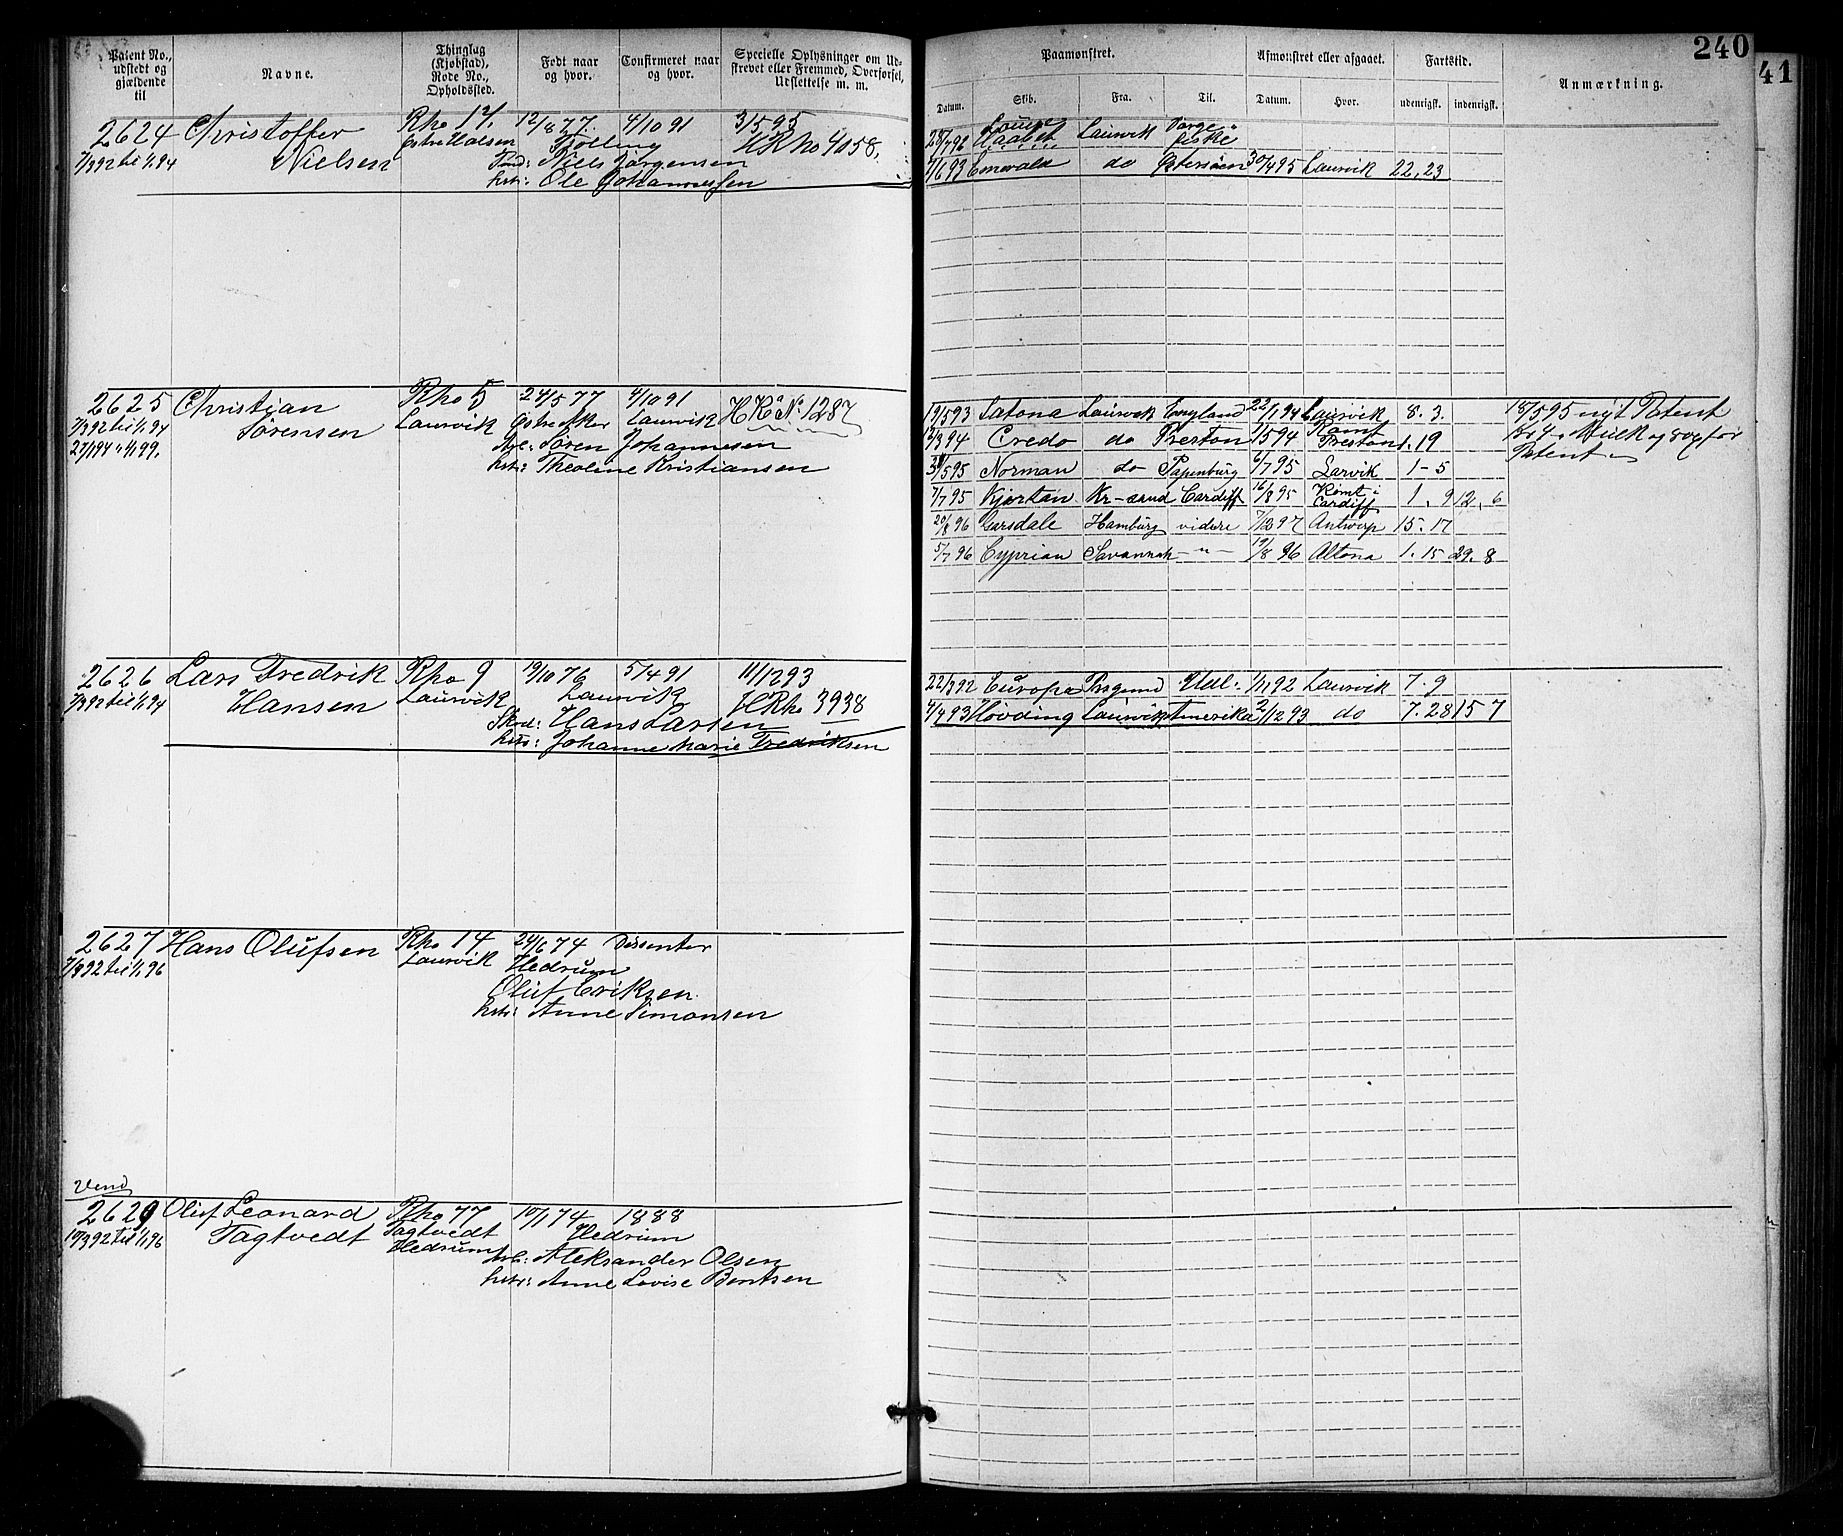 240
41
Patent No., udstedt og gjældende til
Navne.
Thinglag (Kjøbstad), Rode No., Opholdssted.
Født naar og hvor.
Confirmeret naar og hvor.
Specielle Oplysninger om Udskrevet eller Fremmed, Overførsel, Udslettelse m. m.
Paamønstret.
Afmønstret eller afgaaet.
Fartstid.
Anmærkning.
Datum.
Skib.
Fra.
Til.
Datum.
Hvor.
udenrigsk.
indenrigsk.
2624 Christoffer Rno 12/1. 12/8 77. 4/10 91 3/5 95
7/3 92 til 1/1 94 Nielsen Østre Halsen Tjølling HRno 4058.
Niels Jørgensen
Ole Johannessen
28/7 96 Haabet Laurvik
7/6 93 Emerald do Østersøen 30/4 95 Laurvik 22,23
2625 Christian Rno 5 24/5 77 4/10 91 HR No 1287
7/3 92 til 1/1 94 Sørensen Laurvik Laurvik
27/1 94 " 1/1 99.
Søren Johannesen
Theoline Kristiansen
19/5 93 Latona Laurvik England 22/1 94 Laurvik 8.3. 18/5 95 nyt Patent
2/3 94 Credo do Preston 15 94 Rømt Preston 1.19
3/5 95 Norman do Papenburg 6/7 95 Larvik 1-5 Patent
7/7 95 Kjartan Kr-sund Cardiff 16/8 95 Rømt i Cardiff 1.9 12.6
20/8 96 Garsdale Hamburg videre 7/12 97 Antwerp 15.17
5/7 96 Cyprian Savannah -"- 19/8 96 Altona 1.15 29.8
2626 Lars Fredrik Rno 9 19/10 76 5/4 91 11/12 93
7/3 92 til 1/1 94 Hansen Laurvik Laurvik HRno 3938
Hans Larsen
Johanne Marie Fredriksen
22/3 92 Europa Prsgrund Udl. 7/11 92 Laurvik 7.9
4/4 93 Høvding Laurvik Amerika 2/12 93 do 7.28 15 7
2627 Hans Olufsen Rno 14 24/6 74 Dissenter
7/3 92 til 1/1 96 Laurvik Hedrum
Oluf Eriksen
Anne Simonsen
Vend
2629 Oluf Leonard Rno 77 10/1 74 1888
10/3 92 til 1/1 96 Tagtvedt Tagtvedt Hedrum
Hedrum
Aleksander Olsen
Anne Lovise Berntsen